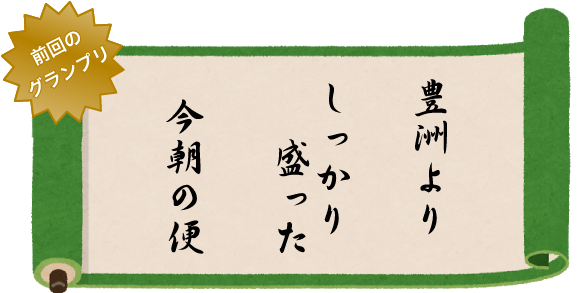 前回の
グランプリ
豊洲より
しっかり
盛った
今朝の便